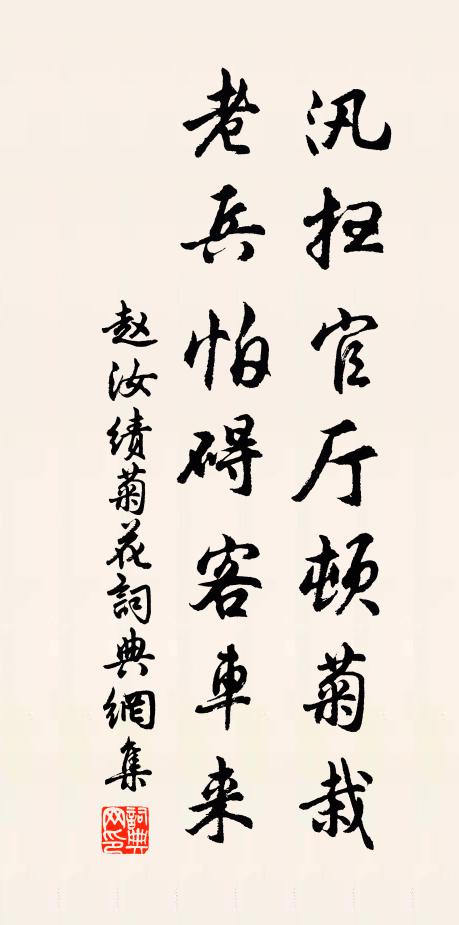 汎扫官厅顿菊栽
老兵怕碍客車来
赵汝绩菊花詞典網集
詞典网印